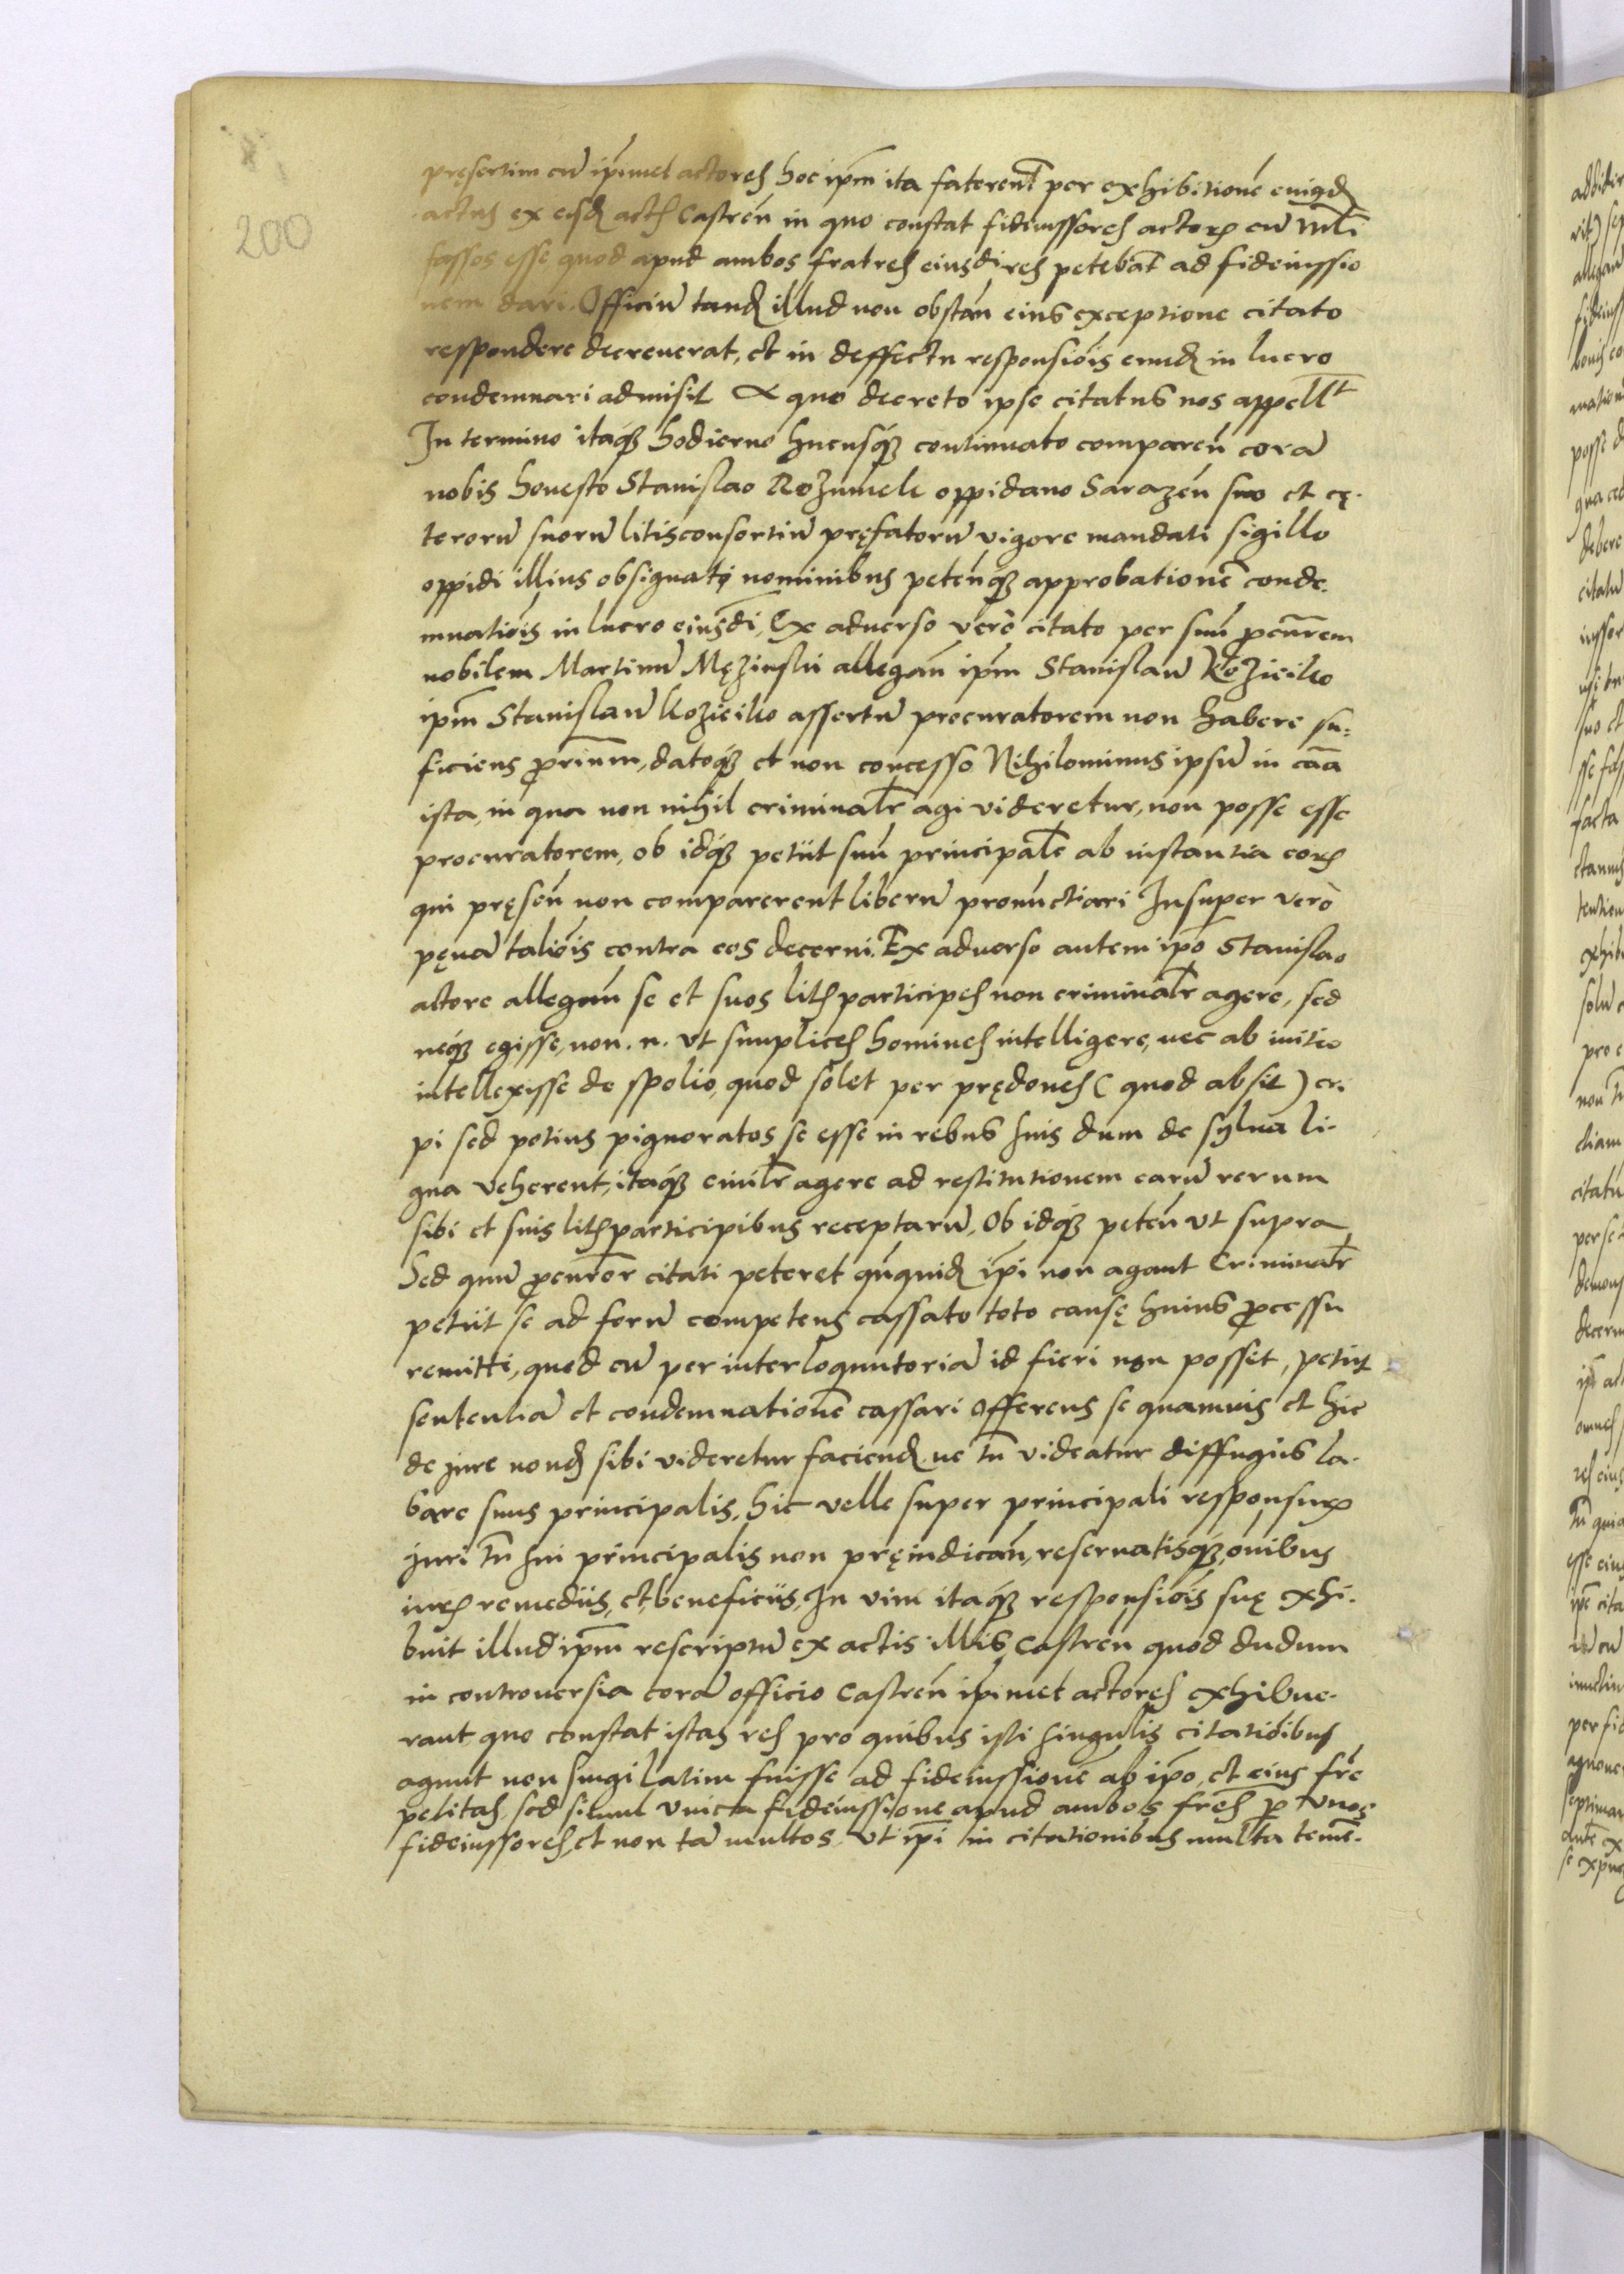 200
pręsertim cũ ipimet actores hoc ipm̃ ita faterent̃ per exhibitionẽ cuiqd
actus ex eisd actis Castreñ in quo constat fideiussores actorꝝ cũ mlĩ
fassos esse quod apud ambos fratres eiusdi res petebãt ad fideiussio
nem dari. Officiũ tand illud non obstañ eius exceptione citato
respondere decreuerat, et in deffectu responsiõis eund in lucro
condemnari admisit A quo decreto ipse citatus nos appellt̃
In termino itaqꝫ hodierno hucusqꝫ continuato compareñ corã
nobis honesto Stanislao Rozumek oppidano Sarazeñ suo et cę-
terorũ suorũ litisconsortiũ pręfatorũ vigore mandati sigillo
oppidi illius obsignati nominibus peteñqꝫ approbationẽ conde-
mnatiõis in lucro eiusdi, Ex aduerso vero citato per suũ ꝓcur̃em
nobilem Martinũ Męzinski allegañ ipm̃ Stanislaũ Kozieiko
ipm̃ Stanislaũ Kozieiko assertũ procuratorem non habere su-
ficiens ꝓrium̃, datoqꝫ et non concesso Nihilominus ipsũ in cãa
ista, in qua non nihil criminalr̃ agi videretur, non posse esse
procuratorem, ob idqꝫ petiit suũ principalẽ ab instantia eorꝝ
qui pręseñ non comparerent liberũ pronũctiari Insuper verò
pęnã taliõis contra eos decerni. Ex aduerso autem ipõ Stanislao
actore allegañ se et suos litisparticipes non criminalr̃ agere, sed
neqꝫ egisse, non .n. vt simplices homines intelligere, nec ab initio
intellexisse de spolio, quod solet per prędones (quod absit) eri-
pi sed potius pignoratos se esse in rebus suis dum de sylua li-
gna veherent, itaqꝫ ciuilr̃ agere ad restitutionem earũ rerum
sibi et suis litisparticipibus receptarũ, Ob idqꝫ peteñ vt supra
Sed quũ ꝓcur̃or citati peteret qñquid ipĩ non agant Criminalr̃
petiit se ad forũ competens cassato toto causę huius ꝓcessu
remitti, quod cũ per interloquutoriã id fieri non posset, petiit
sententiã et condemnationẽ cassari offerens se quamuis et hic
de jure nond sibi videretur faciend ne tñ videatur diffugiis la-
bare suus principalis, hic velle super principali responsurꝝ
juri tñ sui principalis non pręiudicañ, reseruatisqꝫ oĩbus
iuris remediis, et beneficiis, In vim itaqꝫ responsiõis suę exhi-
buit illud ipm̃ rescriptũ ex actis illis Castreñ quod dudum
in controuersia corã officio Castreñ ipimet actores exhibue-
rant quo constat istas res pro quibus isti singulis citatiõibus
agunt non singilatim fuisse ad fideiussionẽ ab ipõ et eius frẽ
petitas, sed simul vnica fideiussione apud ambos frẽs ꝑ vnos
fideiussores, et non tã multos vt ipĩ in citationibus multa temẽ-